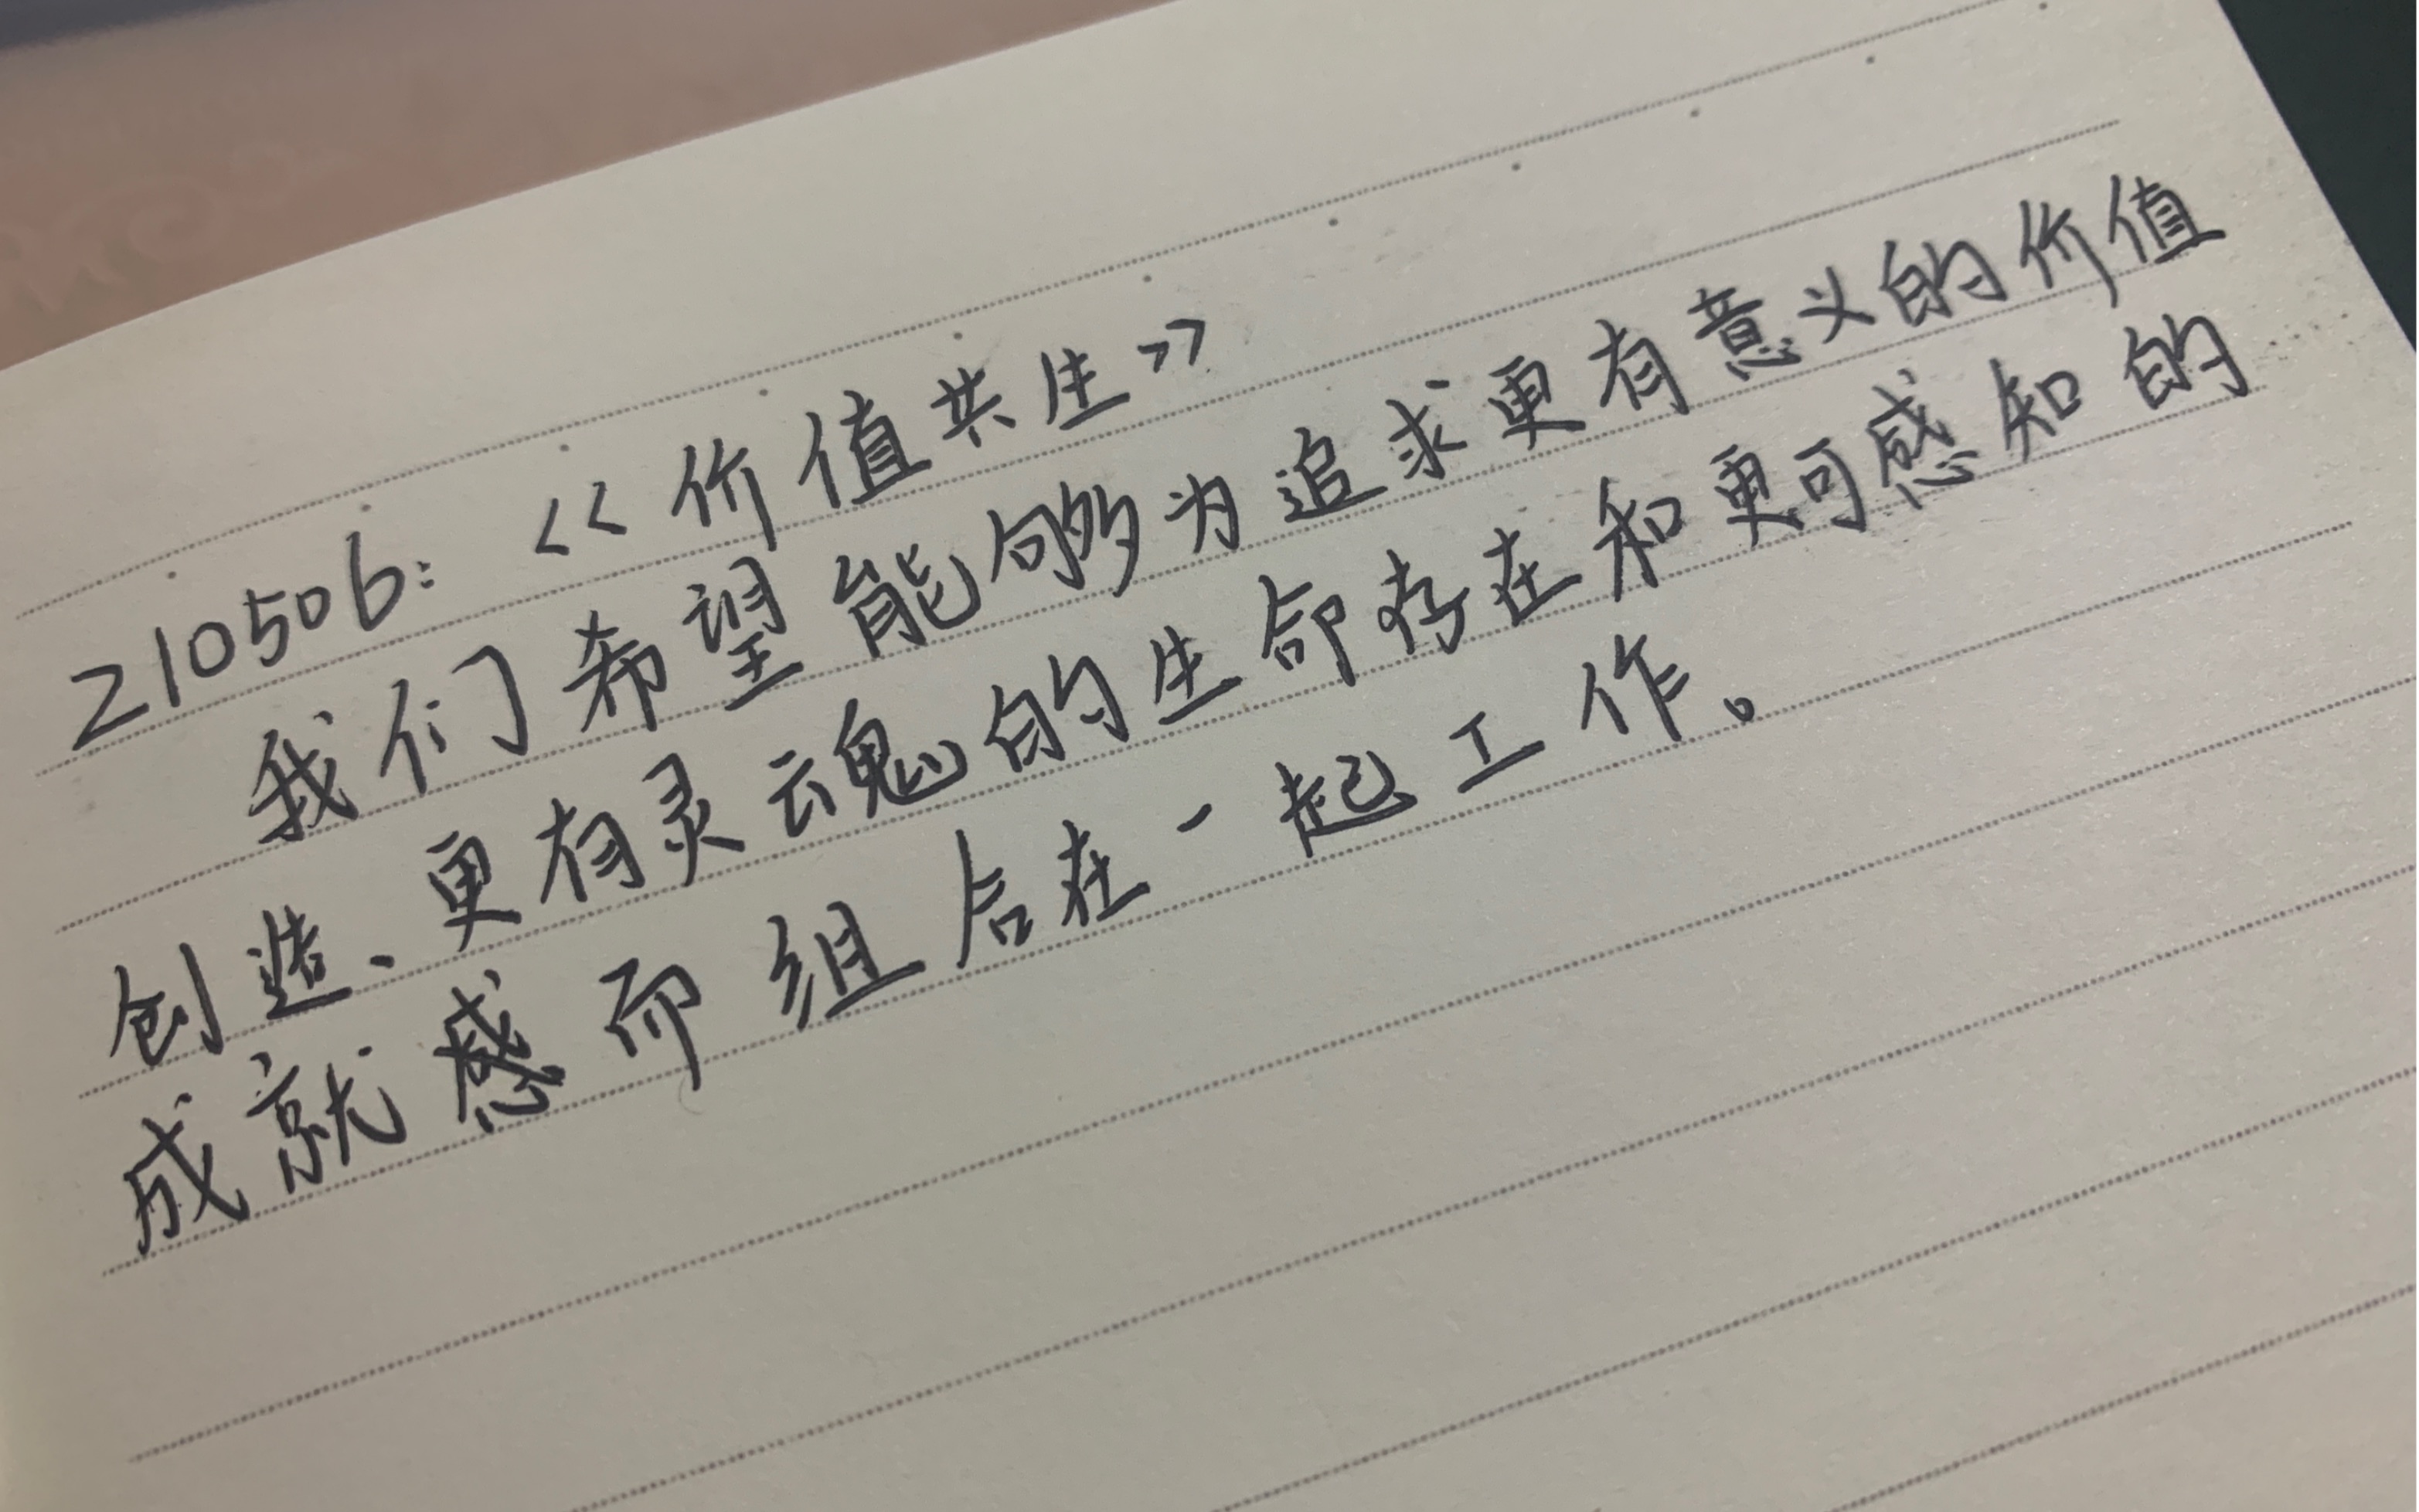 210506：《价值共生》
我们希望能够为追求更有意义的价值
创造、更有灵魂的生命存在和更可感知的
成就感而组合在一起工作。